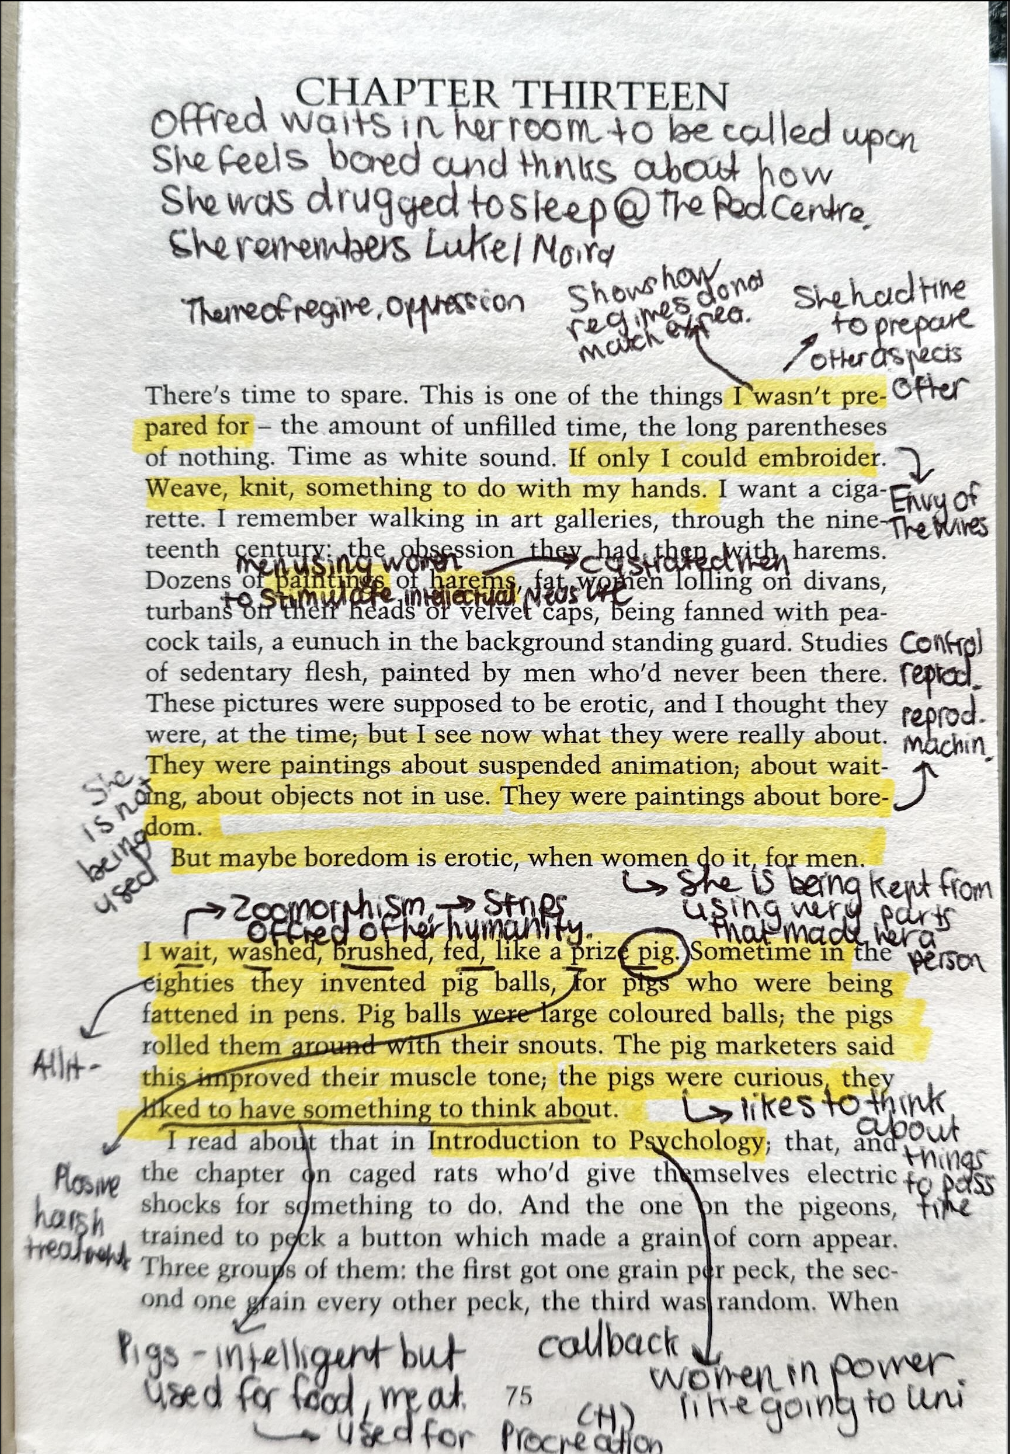 CHAPTER THIRTEEN
Offred waits in her room to be called upon
She feels bored and thnks about how
She was drugged to sleep @ The Red Centre.
She remembers Luke / Moira
Theme of regime, oppression
Shows how
regimes do not
match
She had time
to prepare
other aspects
Ofter
There's time to spare. This is one of the things I wasn't pre-
pared for – the amount of unfilled time, the long parentheses
of nothing. Time as white sound. If only I could embroider.
Weave, knit, something to do with my hands. I want a ciga-
Envy of
The Wives
rette. I remember walking in art galleries, through the nine-
teenth century: the obsession they had then with harems.
men using women
castrated men
Dozens of paintings of harems, fat women lolling on divans,
to stimulate intellectual
turbans on their heads or velvet caps, being fanned with pea-
cock tails, a eunuch in the background standing guard. Studies
of sedentary flesh, painted by men who'd never been there.
These pictures were supposed to be erotic, and I thought they
were, at the time; but I see now what they were really about.
Control
reprod.
reprod.
machin.
They were paintings about suspended animation; about wait-
ing, about objects not in use. They were paintings about bore-
dom.
She
is not
being
used
But maybe boredom is erotic, when women do it, for men.
She is being kept from
using very parts
that made her a
person
Zoomorphism → Strips
Offred of her humanity.
I wait, washed, brushed, fed, like a prize pig. Sometime in the
eighties they invented pig balls, for pigs who were being
fattened in pens. Pig balls were large coloured balls; the pigs
rolled them around with their snouts. The pig marketers said
Allit-
this improved their muscle tone; the pigs were curious, they
liked to have something to think about.
likes to think
about
things
to pass
time
I read about that in Introduction to Psychology; that, and
the chapter on caged rats who'd give themselves electric
Plosive
harsh
treatment
shocks for something to do. And the one on the pigeons,
trained to peck a button which made a grain of corn appear.
Three groups of them: the first got one grain per peck, the sec-
ond one grain every other peck, the third was random. When
Pigs - intelligent but
used for food, meat.
used for Procreation
75
(H)
callback
women in power
like going to uni